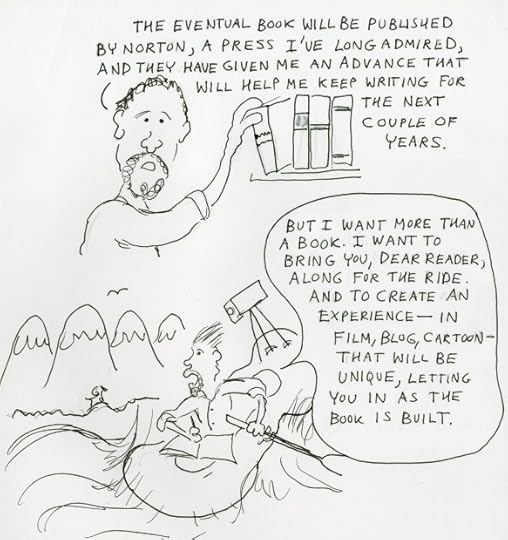 THE EVENTUAL BOOK WILL BE PUBLISHED
BY NORTON, A PRESS I'VE LONG ADMIRED,
AND THEY HAVE GIVEN ME AN ADVANCE THAT
WILL HELP ME KEEP WRITING FOR
THE NEXT
COUPLE OF
YEARS.
BUT I WANT MORE THAN
A BOOK. I WANT TO
BRING YOU, DEAR READER,
ALONG FOR THE RIDE.
AND TO CREATE AN
EXPERIENCE — IN
FILM, BLOG, CARTOON —
THAT WILL BE
UNIQUE, LETTING
YOU IN AS THE
BOOK IS BUILT.